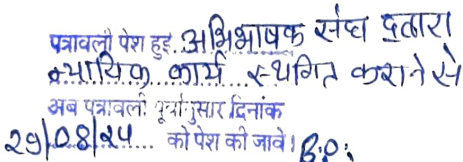 पत्रावली पेश हुई. अभिभाषक संघ द्वारा
न्यायिक कार्य स्थगित कराने से
अब पत्रावली पूर्वानुसार दिनांक
29/08/24 को पेश की जावे।